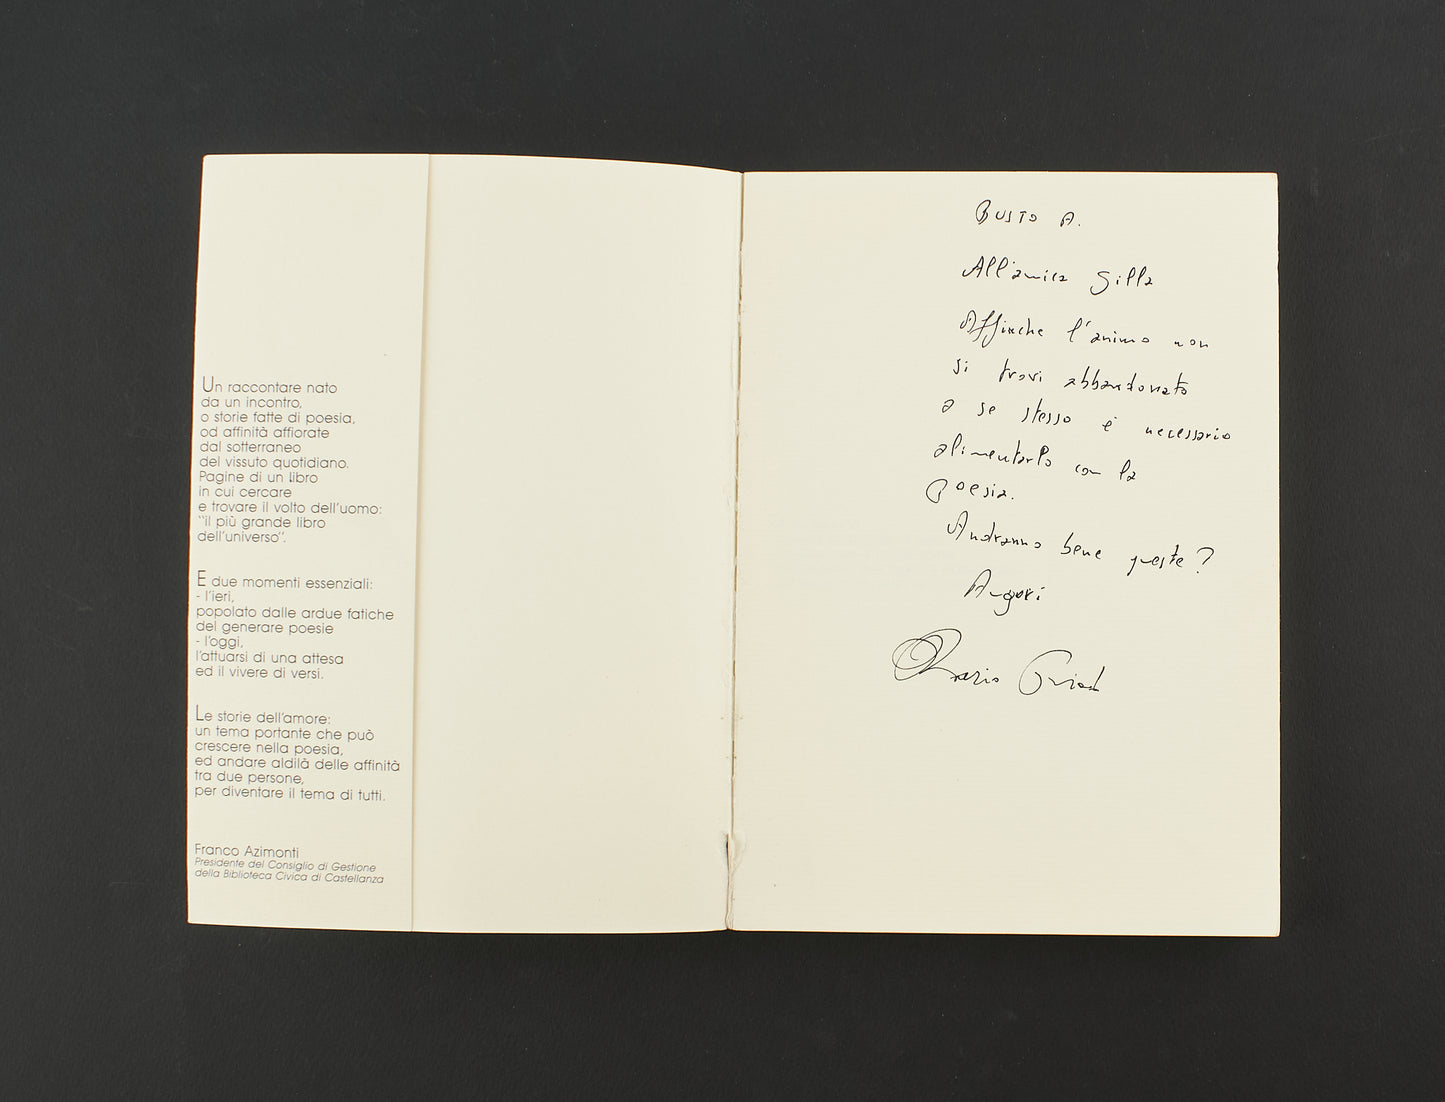 Un raccontare nato
da un incontro,
o storie fatte di poesia,
od affinità affiorate
dal sotterraneo
del vissuto quotidiano.
Pagine di un libro
in cui cercare
e trovare il volto dell'uomo:
"il più grande libro
dell'universo".
E due momenti essenziali:
- l'ieri,
popolato dalle ardue fatiche
del generare poesie
- l'oggi,
l'attuarsi di una attesa
ed il vivere di versi.
Le storie dell'amore:
un tema portante che può
crescere nella poesia,
ed andare aldilà delle affinità
tra due persone,
per diventare il tema di tutti.
Franco Azimonti
Presidente del Consiglio di Gestione
della Biblioteca Civica di Castellanza
Busto A.
All'amica Gilla
Affinche l'animo non
si trovi abbandonato
a se stesso è necessario
alimentarlo con la
poesia.
Andranno bene queste?
Auguri